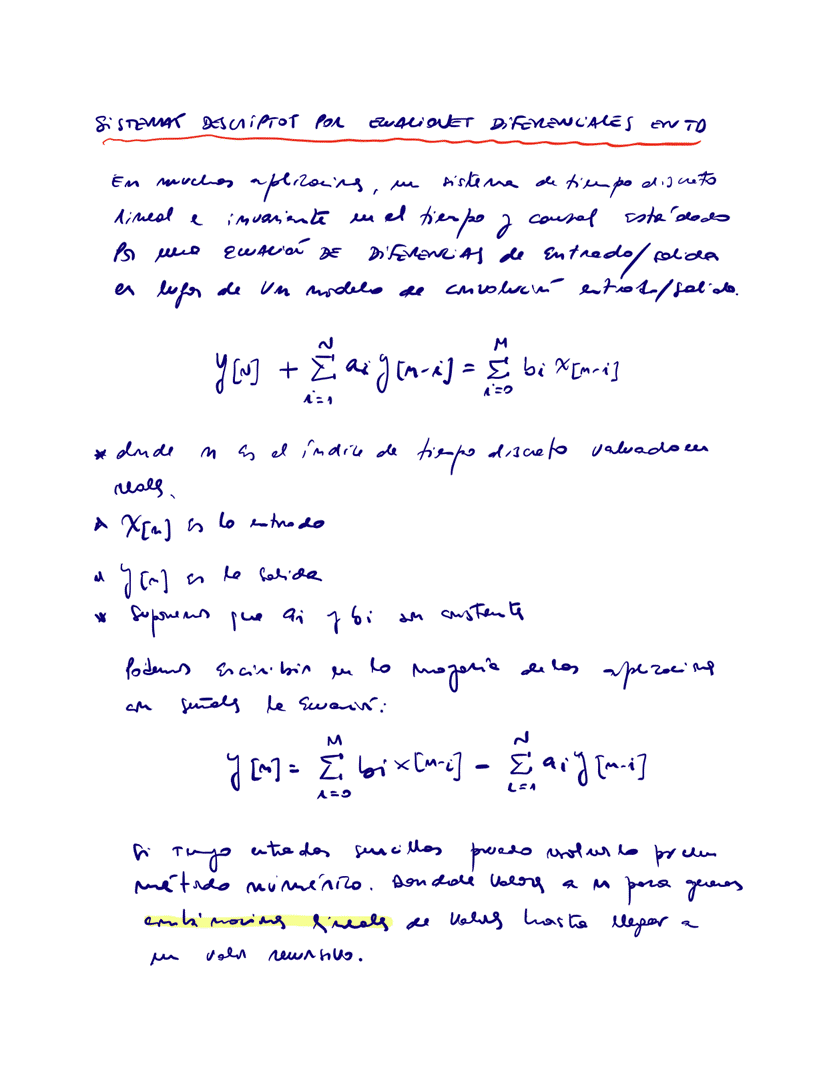 SISTEMAS DESCRIPTOS POR ECUACIONES DIFERENCIALES EN TD
En muchas aplicaciones, un sistema de tiempo discreto
lineal e invariante en el tiempo y causal está dado
Por una ECUACIÓN DE DIFERENCIAS de entrada/salida
en lugar de un modelo de convolución entrada/salida.
y[N] + \sum_{i=1}^{N} ai y[n-i] = \sum_{i=0}^{M} bi x[n-i]
* donde n es el índice de tiempo discreto valuado en
reales.
* X[n] es la entrada
* y[n] es la salida
* Suponemos que ai y bi son constantes
Podemos escribir en la mayoría de las aplicaciones
con señales la ecuación:
y[n] = \sum_{i=0}^{M} bi x[n-i] - \sum_{i=1}^{N} ai y[n-i]
Si Tengo entradas sencillas puedo resolverlo por un
método numérico. Dondole valores a n para generar
combinaciones lineales de valores hasta llegar a
un valor recursivo.